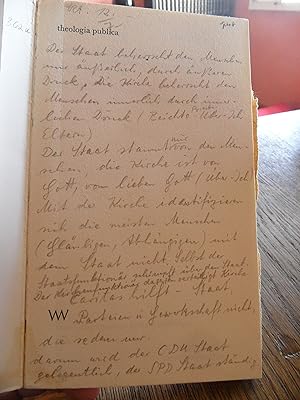 12
theologia publica
Der Staat beherrscht den Menschen
nur äußerlich, durch äußeren
Druck, die Kirche beherrscht den
Menschen innerlich durch inner-
lichen Druck (Beichte Über-Ich
Eltern)
Der Staat stammt nur von den Men-
schen, die Kirche ist von
Gott, vom lieben Gott (Über-Ich
Mit der Kirche identifizieren
sich die meisten Menschen
(Gläubigen, Abhängigen) mit
dem Staat nicht. Selbst der
Staatsfunktionär schimpft über den Staat.
Der Kirchenfunktionär dagegen verteidigt Kirche
Caritas hilft – Staat,
Parteien u Gewerkschaft nicht,
die reden nur.
darum wird der CDU Staat
gelegentlich, der SPD Staat ständig